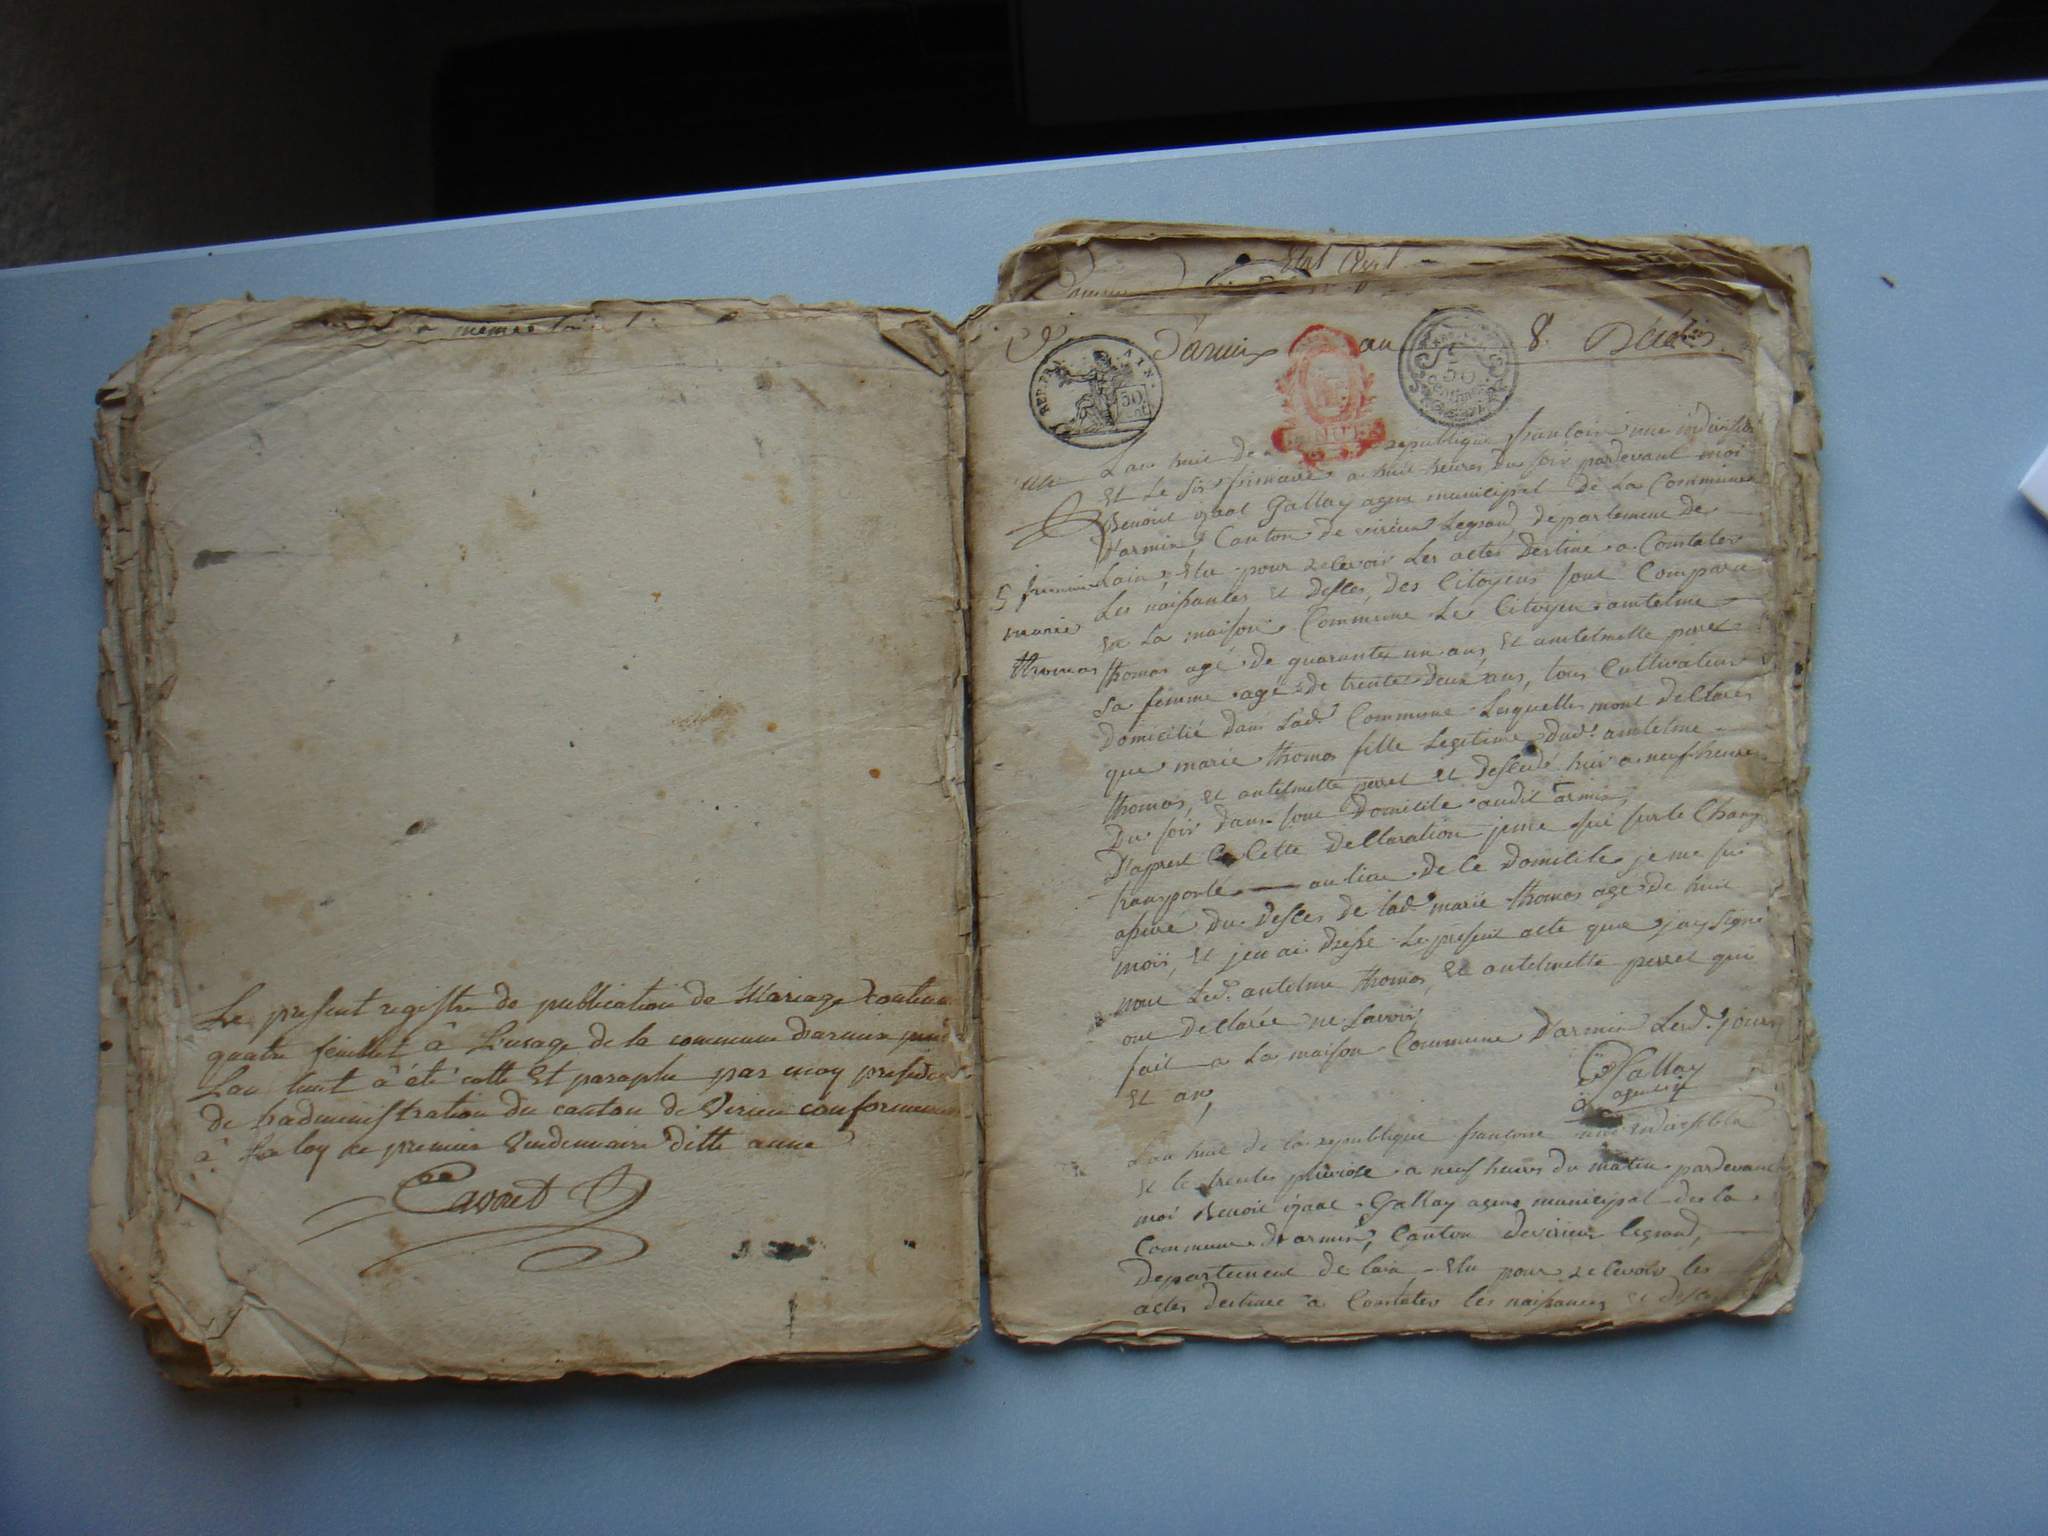 a memes
Le present registre de publication de Mariage Contenant
quatre feuillet â L'usage de la commune d'armix pend
Lan huit â été cotté Et paraphe par moy president
de L'administration du canton de Virieu conformement
â La loy de premier Vendemiaire ditte anne
Cavoret
Etat Civil
D'armix an 8. Décés
REP. FRA AIN.
50
50
CENTIMES
L'an huit de republique francoise une indivisible
Et Le six frimaire a huit heures Du soir pardevant moi
Benoit ignal Gallay agent municipal De La Commune
D'armix, Canton de virieu Legrand, departement De
Lain, Elu pour recevoir Les actes Destiné a Constater
5 frimaire
Les naissances Et Desces, des Citoyens sont Comparu
marie
en La maison Commune Le Citoyen antelme
thomas
thomas agé de quarante un ans, Et antelmette perret
Sa femme agé de trente deux ans, tous Cultivateur
Domicilié dans Lad. Commune Lesquelles mont declarés
que marie thomas fille Legitime dud. antelme
thomas, et antelmette perret Et desedé hier a neuf heures
Du soir dans son Domicile audit armix,
D'apres Cette declaration je me sui sur le Champ
transporté au lieu de ce Domicile je me sui
assuré Du desces de lad. marie thomas age de huit
mois, Et jen ai dressé Le present acte que jay signé
non Led. antelme thomas, Et antelmette perret qui
ont declarée ne savoir,
fait a La maison Commune D'armix Led. jour
Et an,
Gallay
agent
Lan huit de la republique francoise une indivisible
Et le trente pluviose a neuf heures du matin pardevant
moi Benoit ignal Gallay agent municipal de la
Commune d'armix, Canton de virieu legrand,
departement de lain Elu pour recevoir les
actes destinee a Constater les naissances et desces